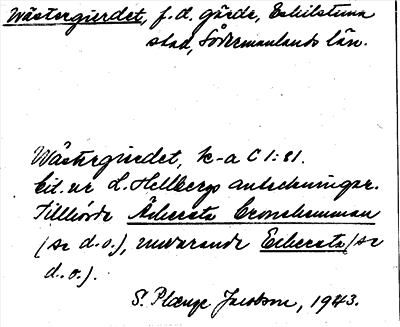 Wästergierdet, f.d. gärde, Eskilstuna
stad, Södermanlands län.
Wästergierdet, k-a C 1:81.
Cit. ur L. Hellbergs anteckningar.
Tillhörde Äkereta Cronohemman
(se d.o.), nuvarande Ekereta (se
d.o.).
S. Plænge Jacobson, 1943.